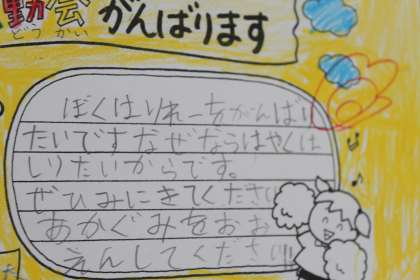 動会 がんばります
どうかい
ぼくはりれーをがんばり
たいですなぜならはやくは
しりたいからです。
ぜひみにきてください!!
あかぐみをおお
えんしてください!!